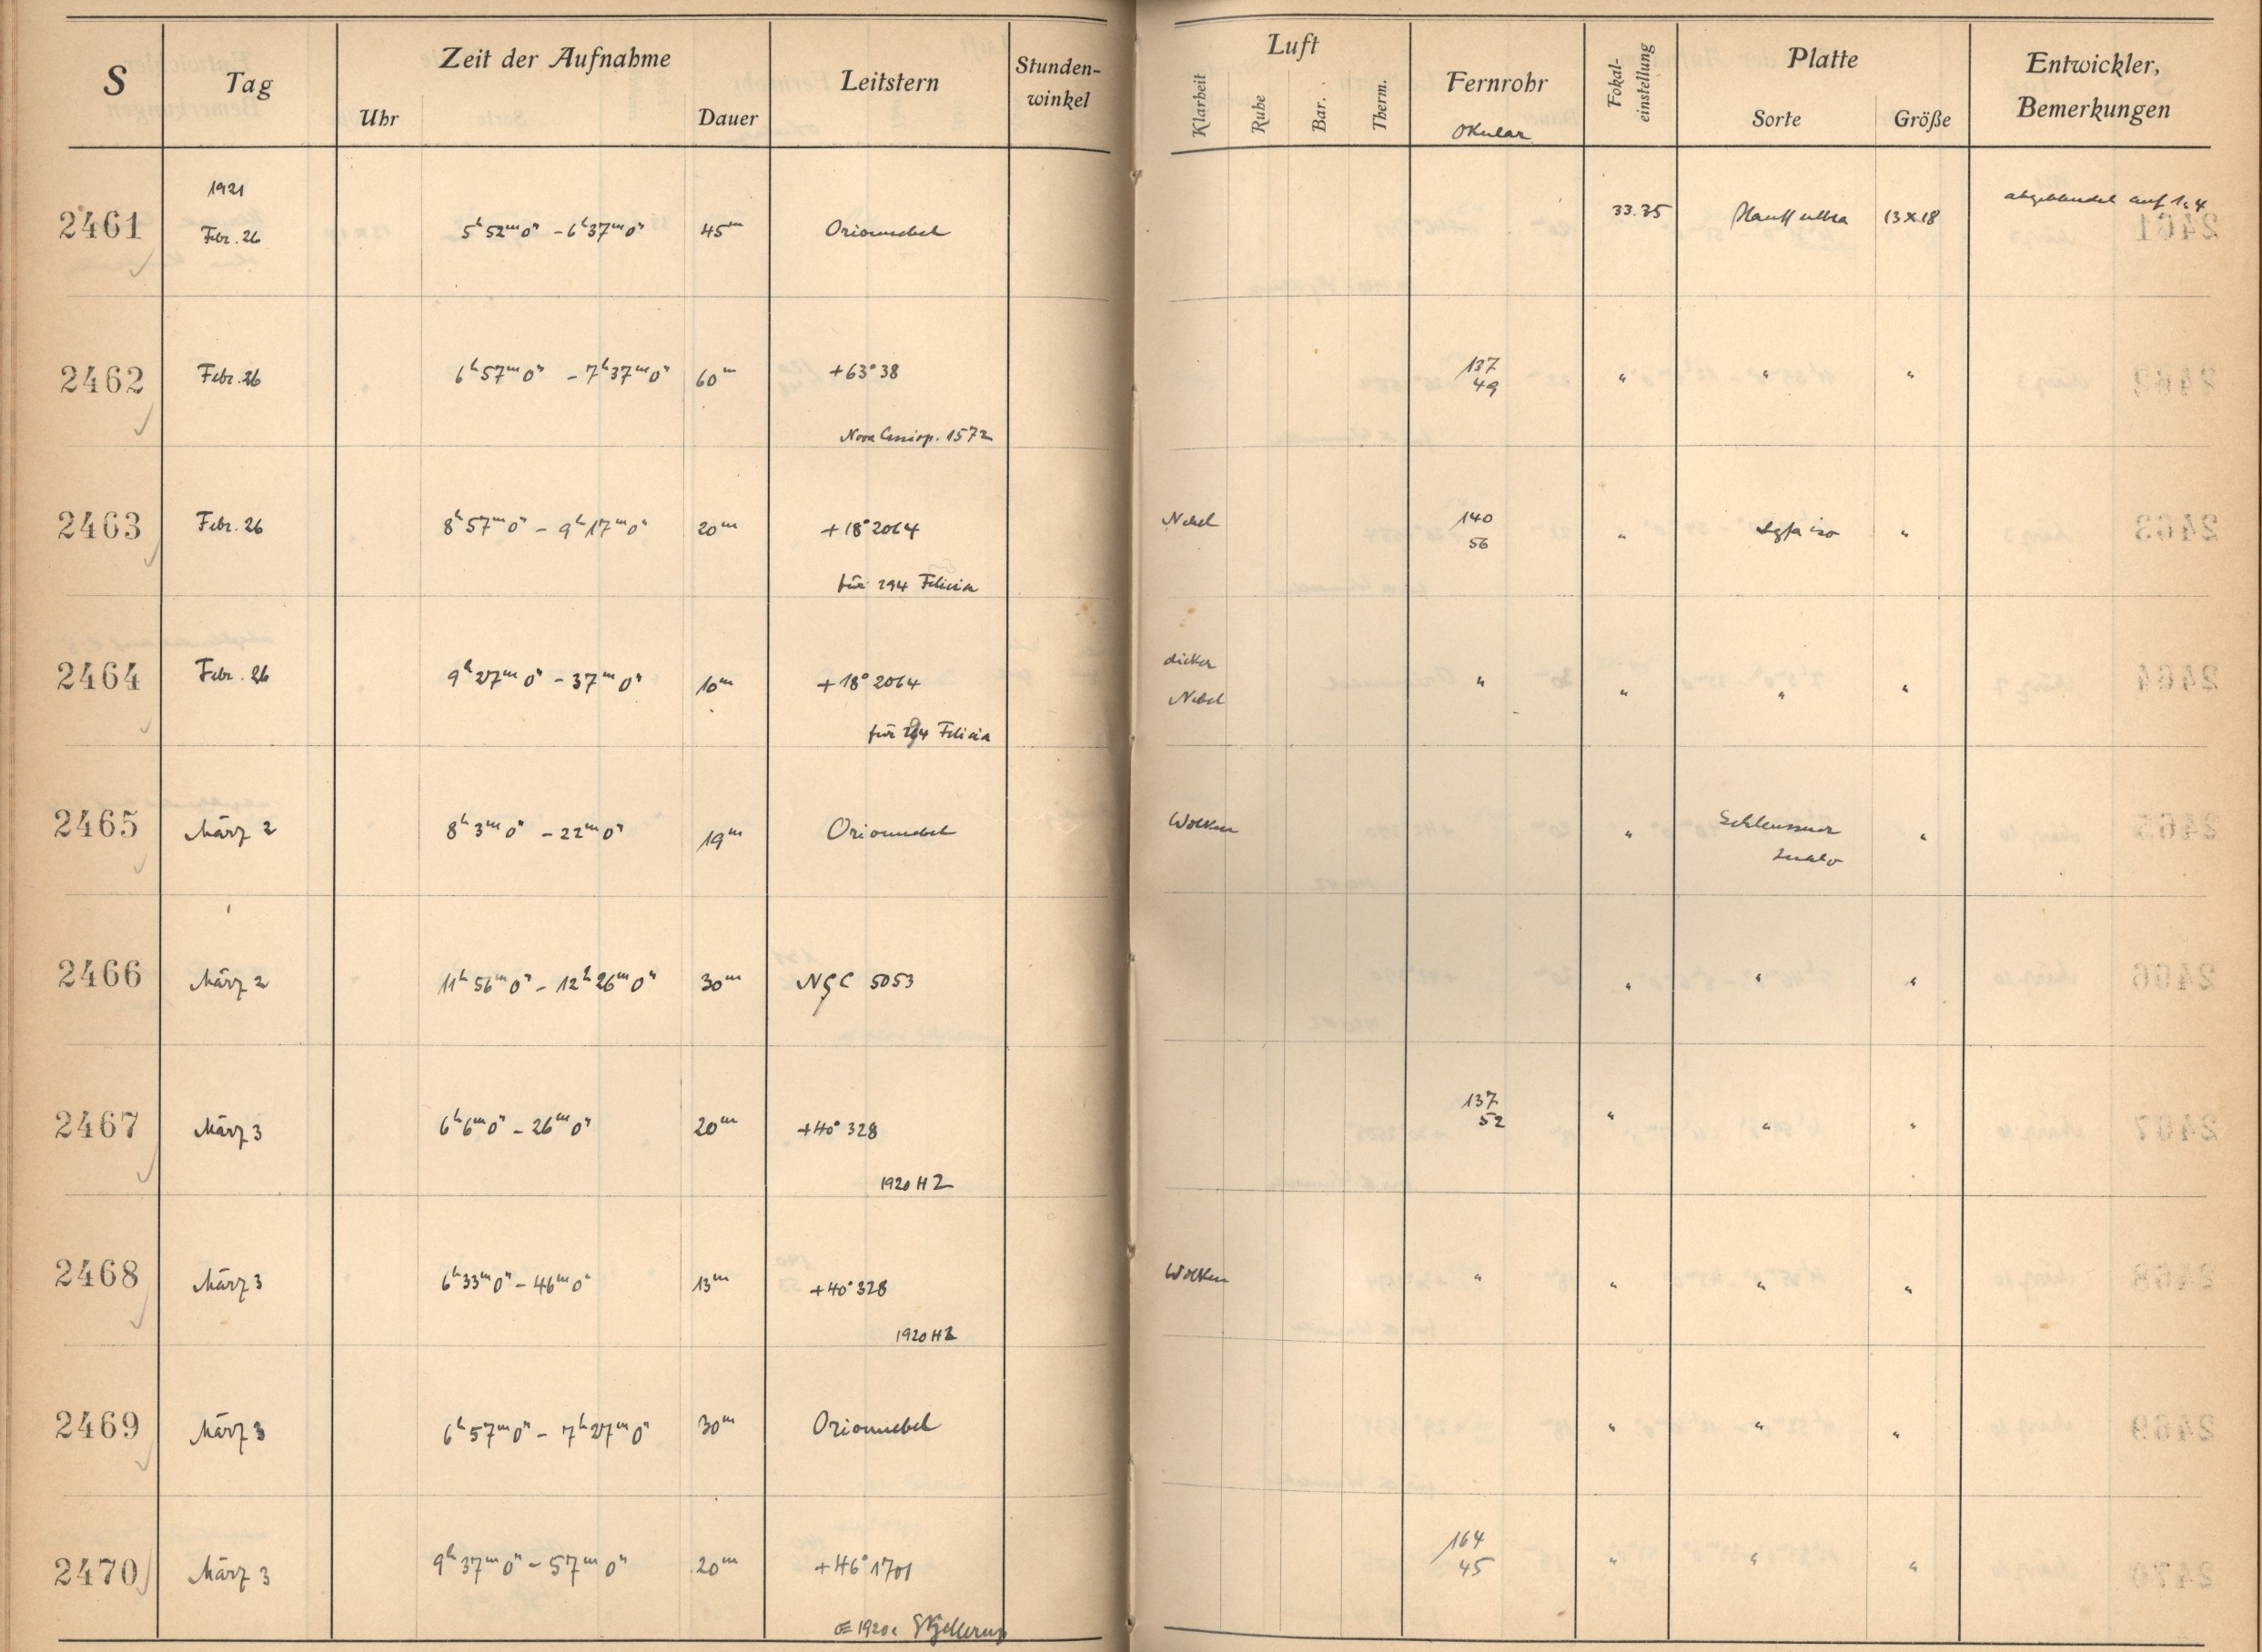 S Tag Zeit der Aufnahme Uhr Dauer Leitstern Stunden-winkel Luft Klarheit Ruhe Bar. Therm. Fernrohr Okular Fokal-einstellung Platte Sorte Größe Entwickler, Bemerkungen
1921
2461 Febr. 26 5h 52m 0s - 6h 37m 0s 45m Orionnebel 33.35 Hauff ultra 13 x 18 abgeblendet auf 1:4
2462 Febr. 26 6h 57m 0s - 7h 37m 0s 60m +63° 38 137 " " "
49
Nova Cassiop. 1572
2463 Febr. 26 8h 57m 0s - 9h 17m 0s 20m +18° 2064 Nebel 140 " Agfa iso "
56
für 294 Felicia
2464 Febr. 26 9h 27m 0s - 37m 0s 10m +18° 2064 dicker " " " "
Nebel
für 294 Felicia
2465 März 2 8h 3m 0s - 22m 0s 19m Orionnebel Wolken " Schleussner "
2466 März 2 11h 56m 0s - 12h 26m 0s 30m NGC 5053 " " "
2467 März 3 6h 6m 0s - 26m 0s 20m +40° 328 137 " " "
52
1920 HZ
2468 März 3 6h 33m 0s - 46m 0s 13m +40° 328 Wolken " " " "
1920 HZ
2469 März 3 6h 57m 0s - 7h 27m 0s 30m Orionnebel " " "
2470 März 3 9h 37m 0s - 57m 0s 20m +46° 1701 164 " " "
45
Skjellerup